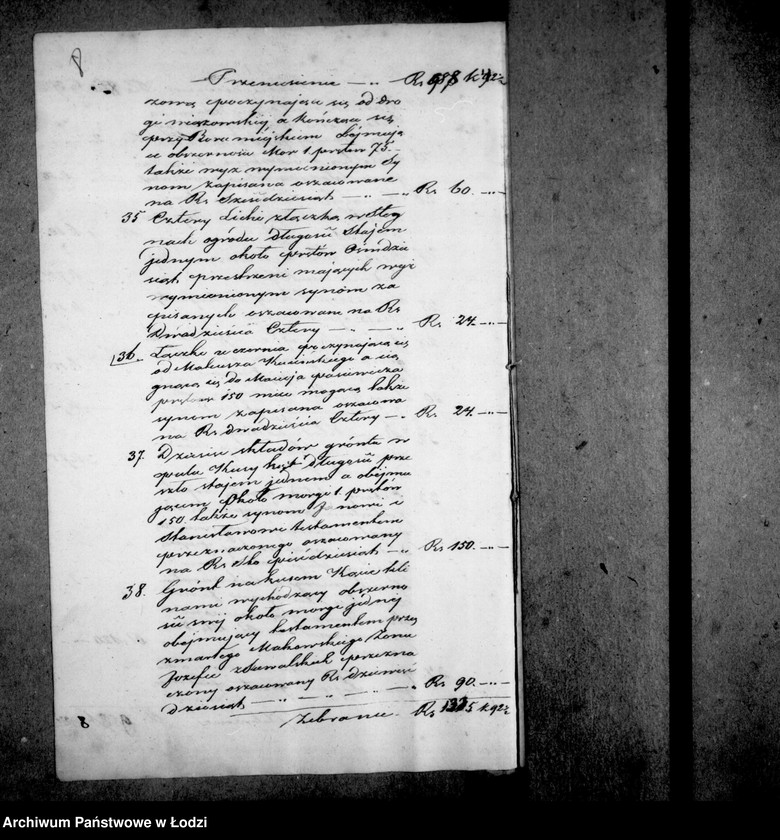 8
Przeniesienie — „ — Rs 987 k 92½
zową poczynająca się od dro
gi a kończąca się
przy Boru miejskim obejmują
ca obszerności Mor 1. prętów 75. —
także wyż wymienionym Sy
nom zapisana oszacowane
na Rs Sześćdziesiąt — „ — Rs 60. — „ —
35 Cztery
nach ogrodu długości Stajem
jednym około prętów Ośmdzie
siąt przestrzeni mających wyż
wymienionym synóm za
pisanych oszacowane na Rs
Dwadzieścia Cztery — „ — „ Rs 24. — „ —
36. Łączka poczynająca się
od Mateusza a cią
gnąca się do Macieja
prętów 150 mieć mogąca także
synom zapisana oszacowa
na Rs dwadzieścia Cztery — „ Rs 24. — „ —
37. składów gróntu w
długości prze
szło stajem jednem a obejmu
jącem około morge 1. prętów
150. także synom Janowi i
Stanisławowi testamentem
przeznaczonego oszacowany
na Rs Sto pięćdziesiąt — „ Rs 150. — „ —
38. Grónt na
nami wychodzący obszerno
ści swej około morge jednej
obejmujący testamentem przez
zmarłego Makowskiego
Józefie przezna
czony oszacowany Rs dziewięć
dziesiąt — „ — „ — „ Rs 90. — „ —
Zebranie — Rs 1335 k 92½
8
Archiwum Państwowe w Łodzi